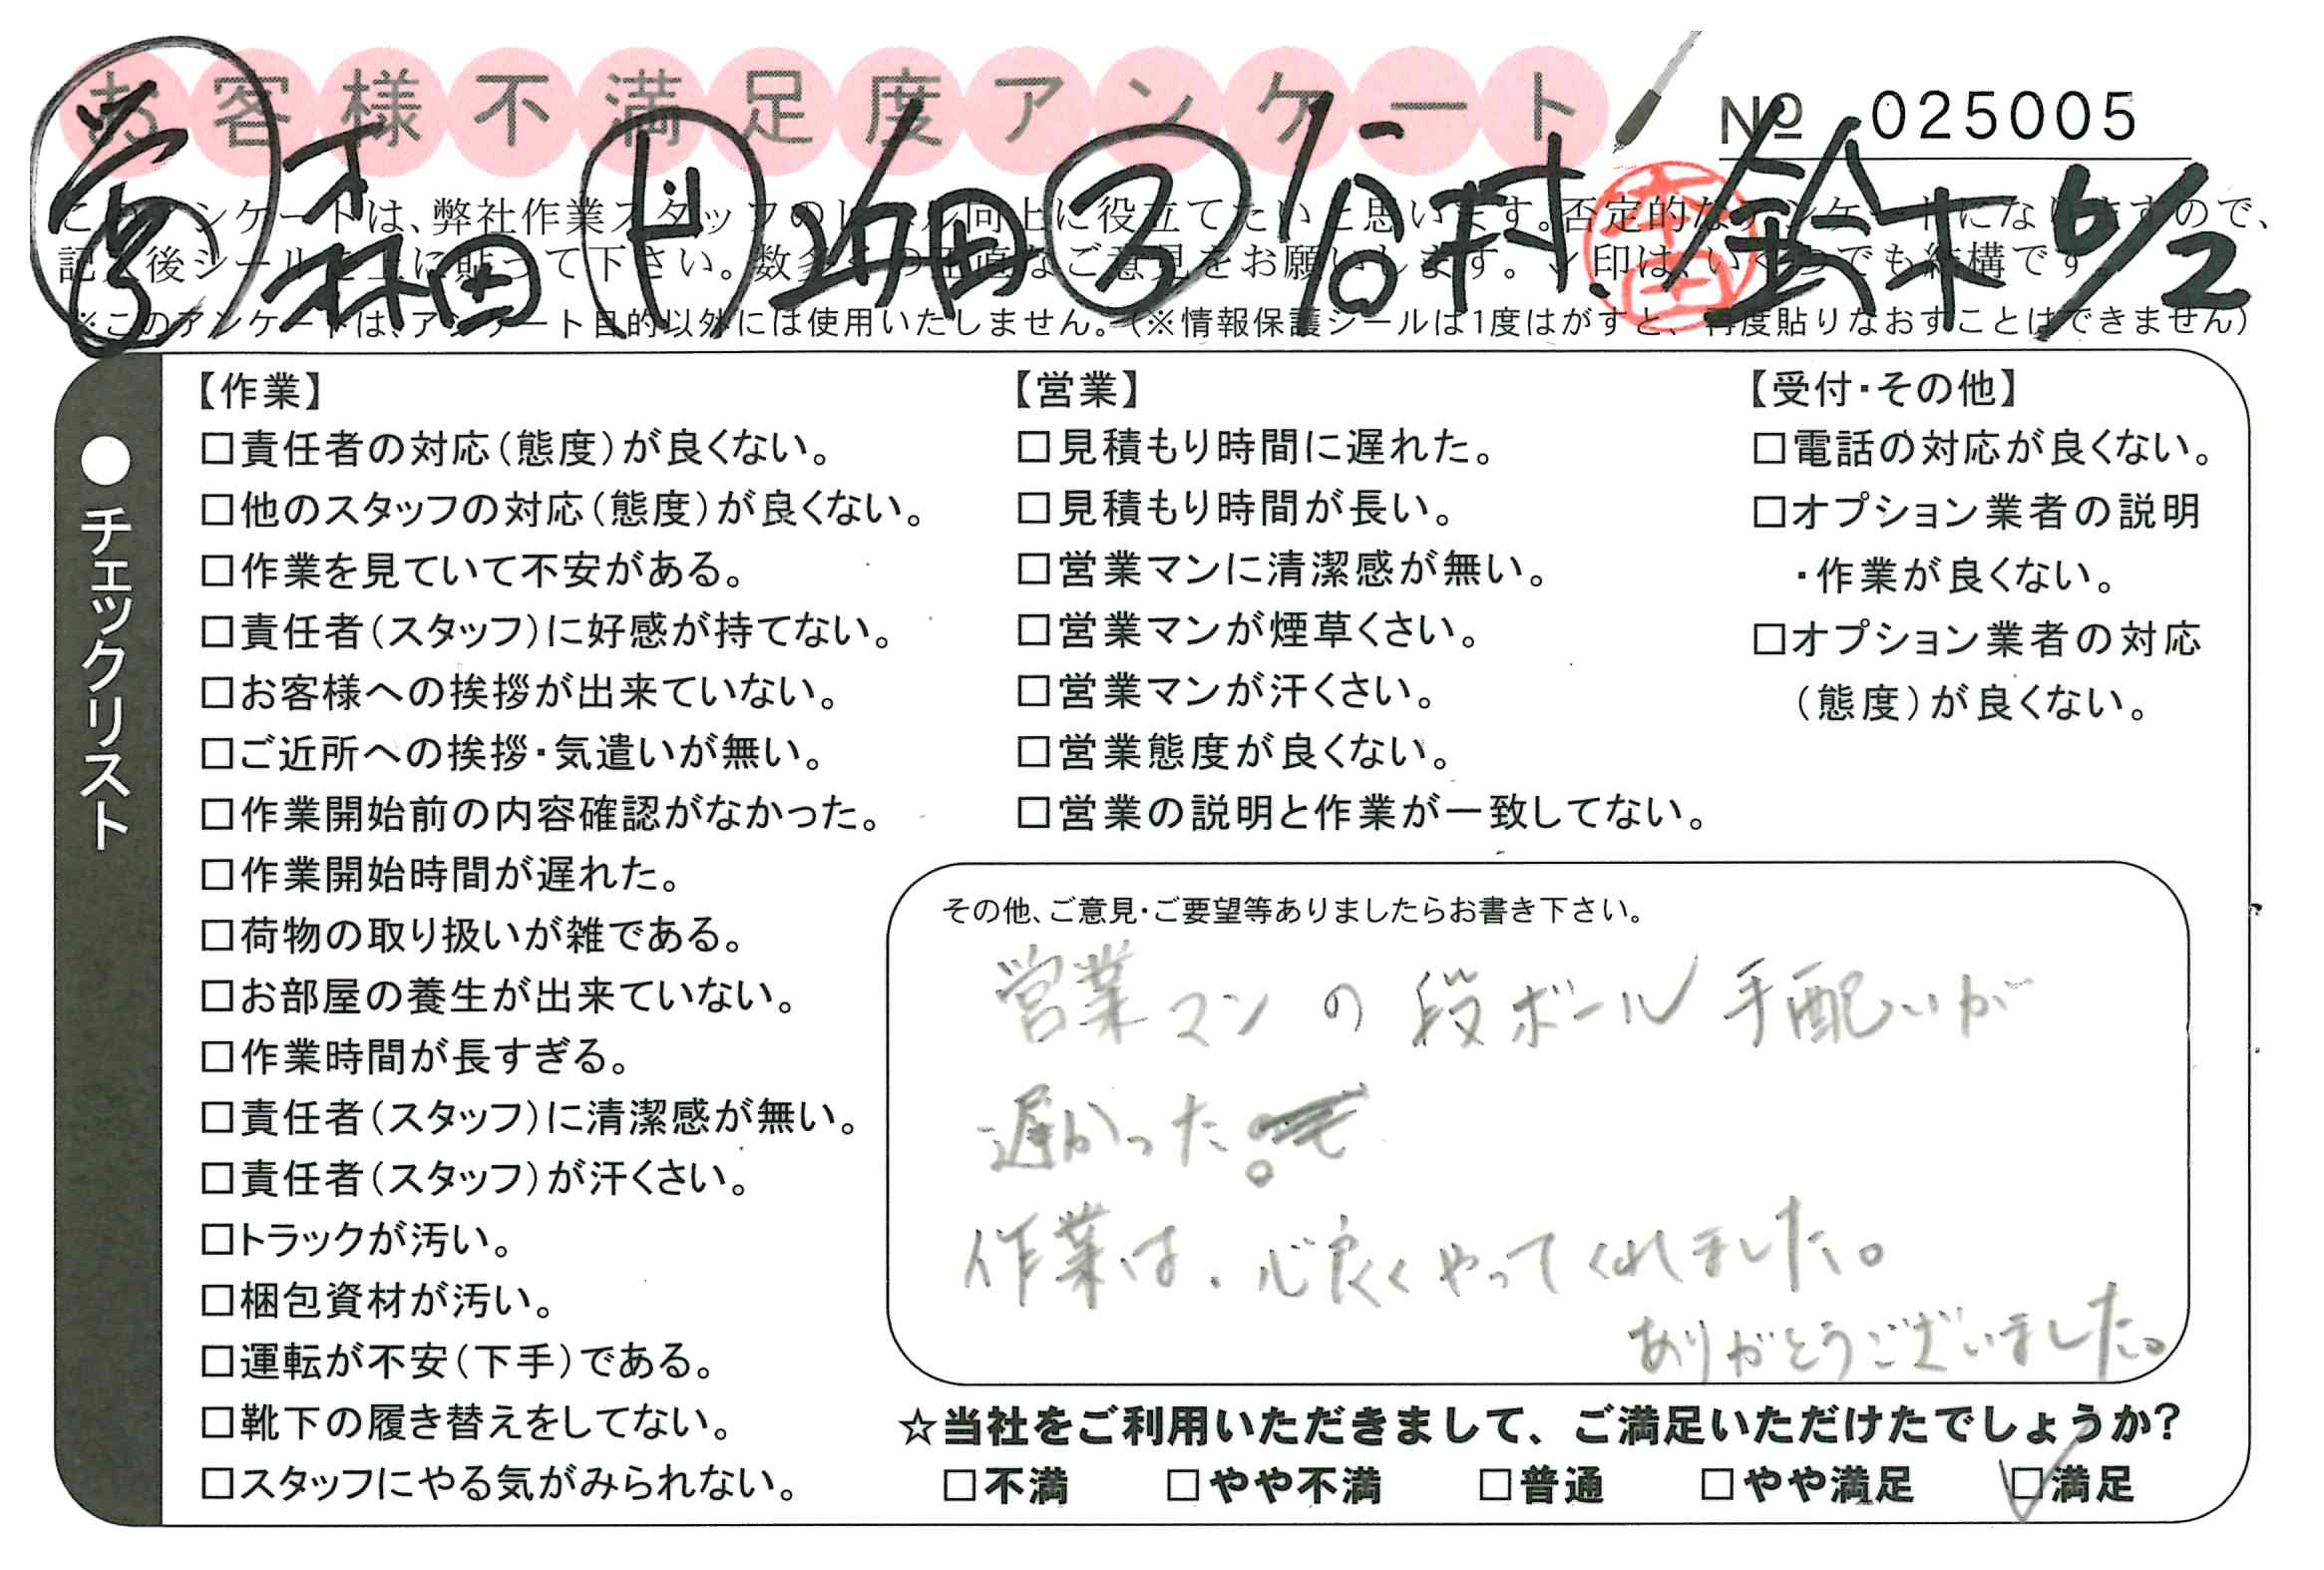 お客様不満足度アンケート
№ 025005
営 森田 ド 山畑 ス 谷村 鈴木 6/2
このアンケートは、弊社作業スタッフのレベル向上に役立てたいと思います。否定的なアンケートになりますので、
記入後シールを上に貼って下さい。数多くの正直なご意見をお願いします。レ印は、いくつでも結構です。
※このアンケートは、アンケート目的以外には使用いたしません。(※情報保護シールは1度はがすと、再度貼りなおすことはできません)
●チェックリスト
【作業】
□責任者の対応(態度)が良くない。
□他のスタッフの対応(態度)が良くない。
□作業を見ていて不安がある。
□責任者(スタッフ)に好感が持てない。
□お客様への挨拶が出来ていない。
□ご近所への挨拶・気遣いが無い。
□作業開始前の内容確認がなかった。
□作業開始時間が遅れた。
□荷物の取り扱いが雑である。
□お部屋の養生が出来ていない。
□作業時間が長すぎる。
□責任者(スタッフ)に清潔感が無い。
□責任者(スタッフ)が汗くさい。
□トラックが汚い。
□梱包資材が汚い。
□運転が不安(下手)である。
□靴下の履き替えをしてない。
□スタッフにやる気がみられない。
【営業】
□見積もり時間に遅れた。
□見積もり時間が長い。
□営業マンに清潔感が無い。
□営業マンが煙草くさい。
□営業マンが汗くさい。
□営業態度が良くない。
□営業の説明と作業が一致してない。
【受付・その他】
□電話の対応が良くない。
□オプション業者の説明
・作業が良くない。
□オプション業者の対応
(態度)が良くない。
その他、ご意見・ご要望等ありましたらお書き下さい。
営業マンの段ボール手配いが
遅かった。
作業は、心良くやってくれました。
ありがとうございました。
☆当社をご利用いただきまして、ご満足いただけたでしょうか?
□不満 □やや不満 □普通 □やや満足 ☑満足